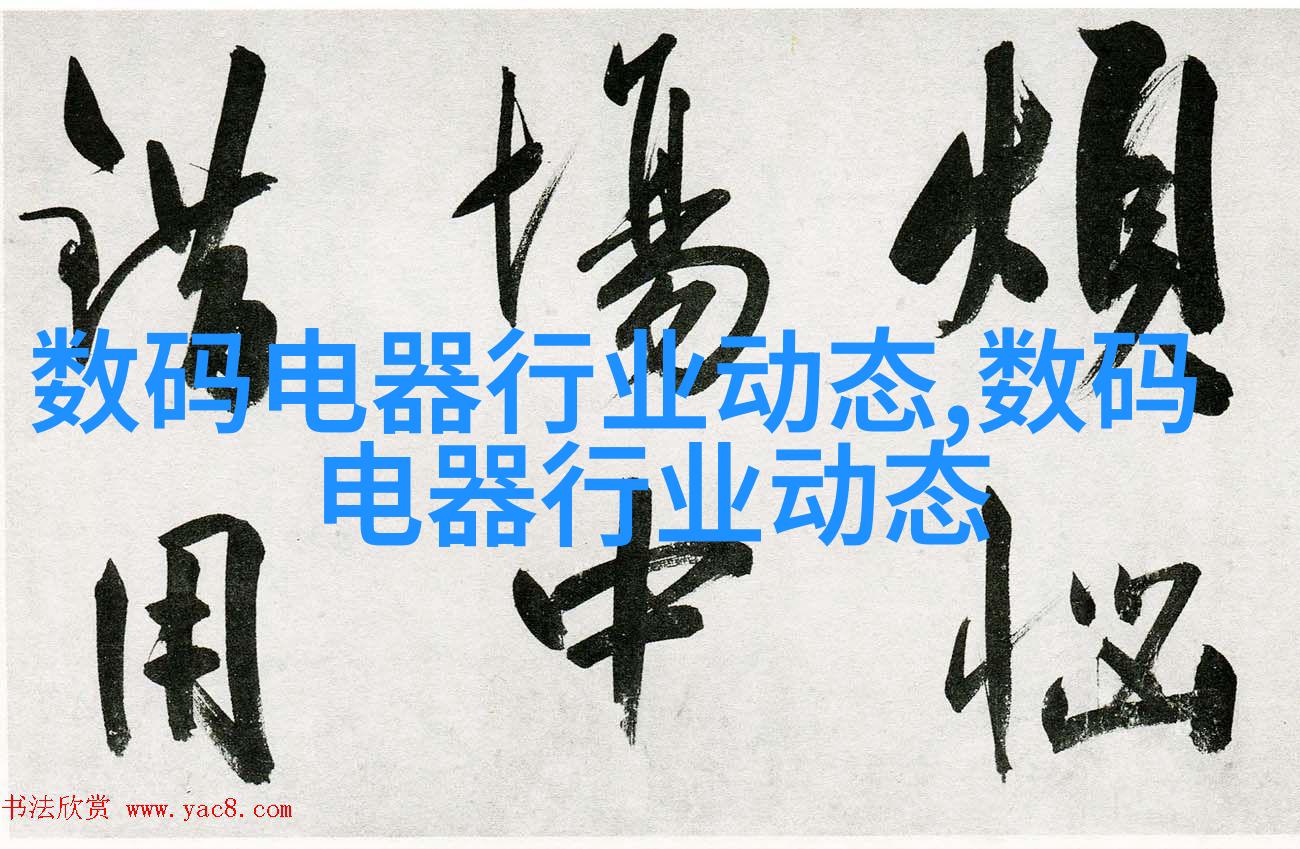 煩惱
場中
錯用
数码电器行业动态,数码
电器行业动态
书法欣赏 www.yac8.com